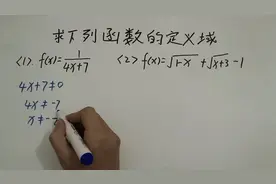 求下列函数的定义域
<1> f(x)=1/(4x+7) <2> f(x)=√1-x + √x+3 -1
4x+7≠0
4x≠-7
x≠-